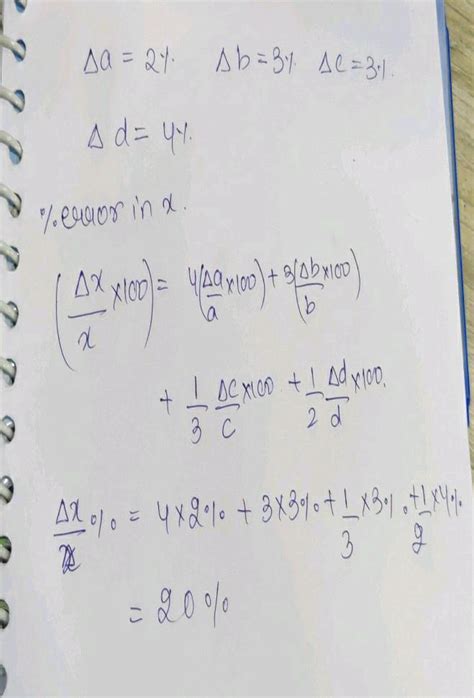 Δa = 2% Δb = 3% Δc = 3%.
Δ d = 4%.
% error in x.
(Δx/x ×100) = 4(Δa/a ×100) + 3(Δb/b ×100)
+ 1/3 Δc/c ×100 + 1/2 Δd/d ×100.
Δx/x % = 4×2% + 3×3% + 1/3 ×3% + 1/2 ×4%
= 20%